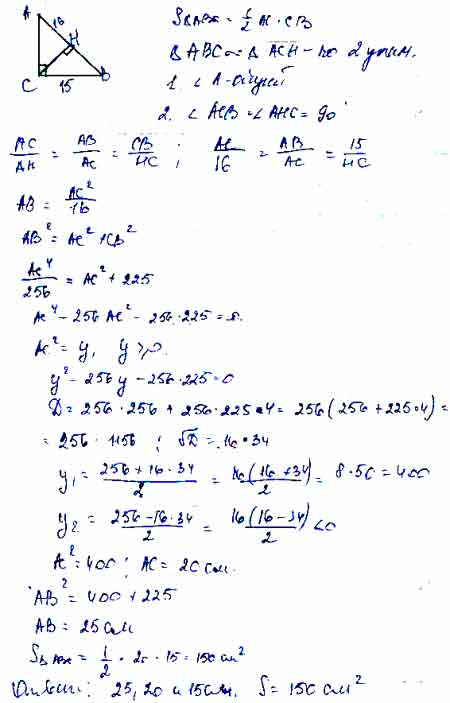 A
16
H
C
15
B
S△ABC = 1/2 AC · CB
△ABC ∾ △ACH – по 2 углам.
1. ∠A – общий
2. ∠ACB = ∠AHC = 90°
AC/AH = AB/AC = CB/HC ; AC/16 = AB/AC = 15/HC
AB = AC²/16
AB² = AC² + CB²
AC⁴/256 = AC² + 225
AC⁴ – 256 AC² – 256·225 = 0.
AC² = y, y > 0.
y² – 256y – 256·225 = 0
D = 256·256 + 256·225·4 = 256(256 + 225·4) =
= 256·1156 ; √D = 16·34
y₁ = (256 + 16·34)/2 = 16(16 + 34)/2 = 8·50 = 400
y₂ = (256 – 16·34)/2 = 16(16 – 34)/2 < 0
AC² = 400 ; AC = 20 см.
AB² = 400 + 225
AB = 25 см
S△ABC = 1/2 · 20 · 15 = 150 см²
Ответ: 25, 20 и 15 см. S = 150 см²